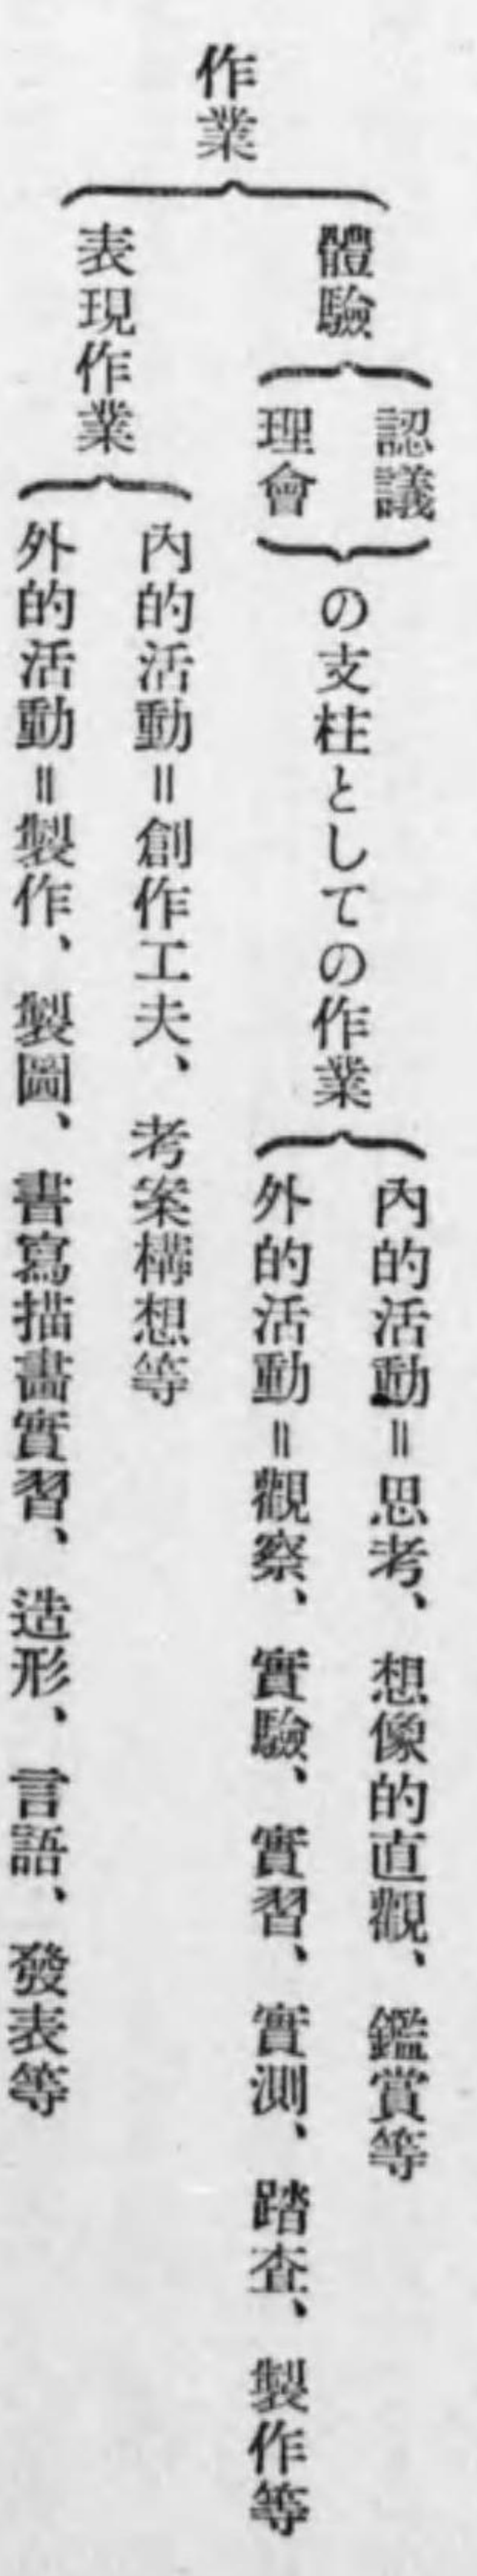 作業
體驗
認議
理會
の支柱としての作業
內的活動＝思考、想像的直觀、鑑賞等
外的活動＝觀察、實驗、實習、實測、踏査、製作等
表現作業
內的活動＝創作工夫、考案構想等
外的活動＝製作、製圖、書寫描畵實習、造形、言語、發表等